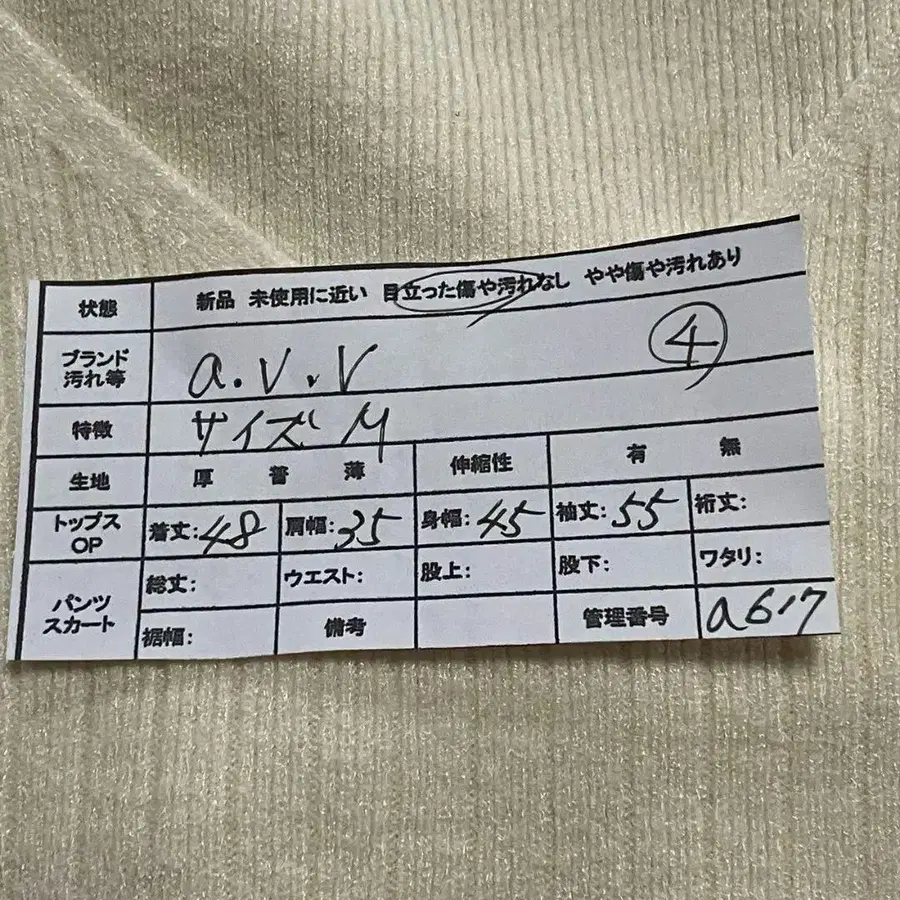 状態 新品 未使用に近い 目立った傷や汚れなし やや傷や汚れあり
ブランド 汚れ等 a.v.v ④
特徴 サイズ M
生地 厚 普 薄 伸縮性 有 無
トップス OP 着丈:48 肩幅:35 身幅:45 袖丈:55 裄丈:
パンツ スカート 総丈: ウエスト: 股上: 股下: ワタリ:
裾幅: 備考 管理番号 a617